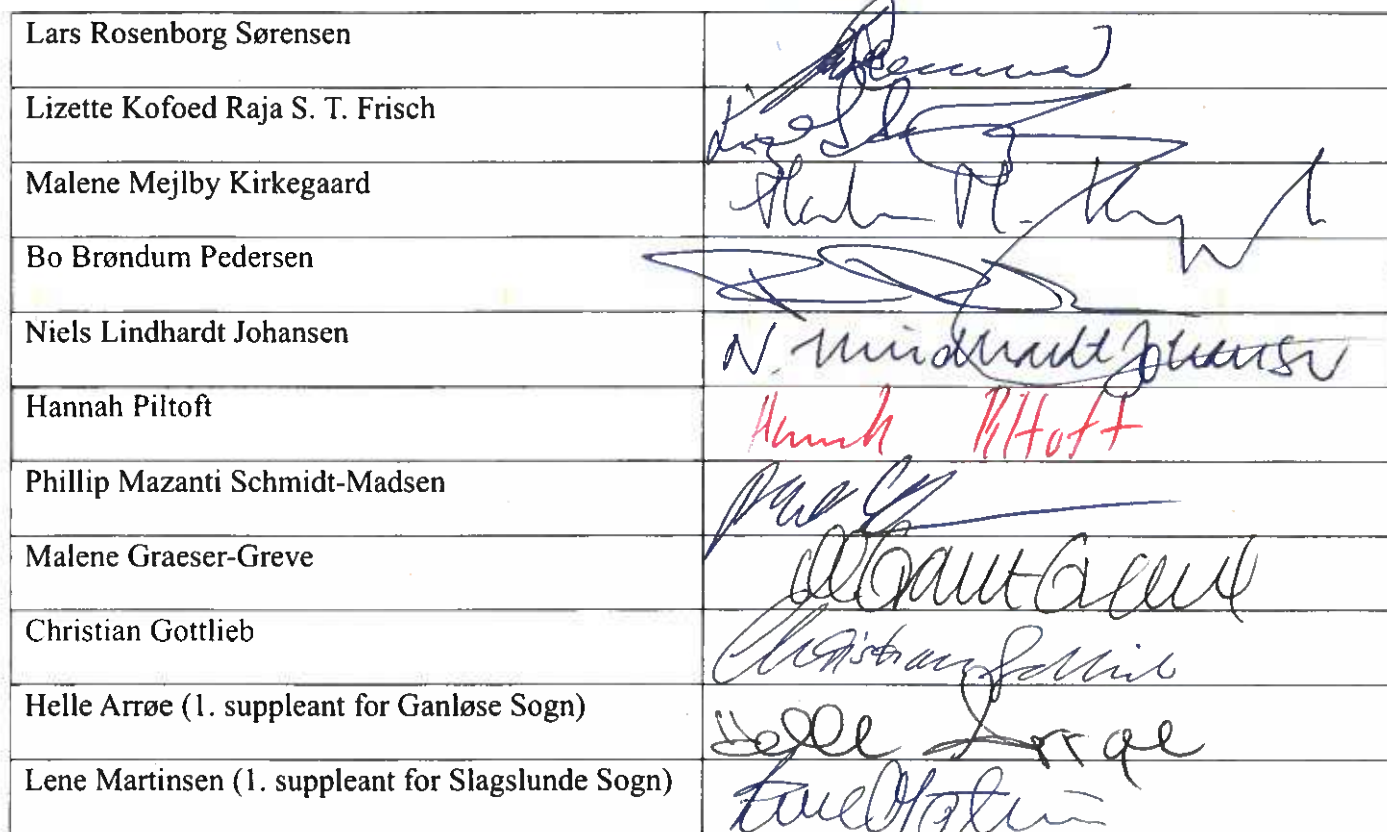 Lars Rosenborg Sørensen
Lizette Kofoed Raja S. T. Frisch
Malene Mejlby Kirkegaard
Bo Brøndum Pedersen
Niels Lindhardt Johansen
N. Lindhardt Johansen
Hannah Piltoft
Hannah Piltoft
Phillip Mazanti Schmidt-Madsen
Malene Graeser-Greve
Christian Gottlieb
Christian Gottlieb
Helle Arrøe (1. suppleant for Ganløse Sogn)
Helle Arrøe
Lene Martinsen (1. suppleant for Slagslunde Sogn)